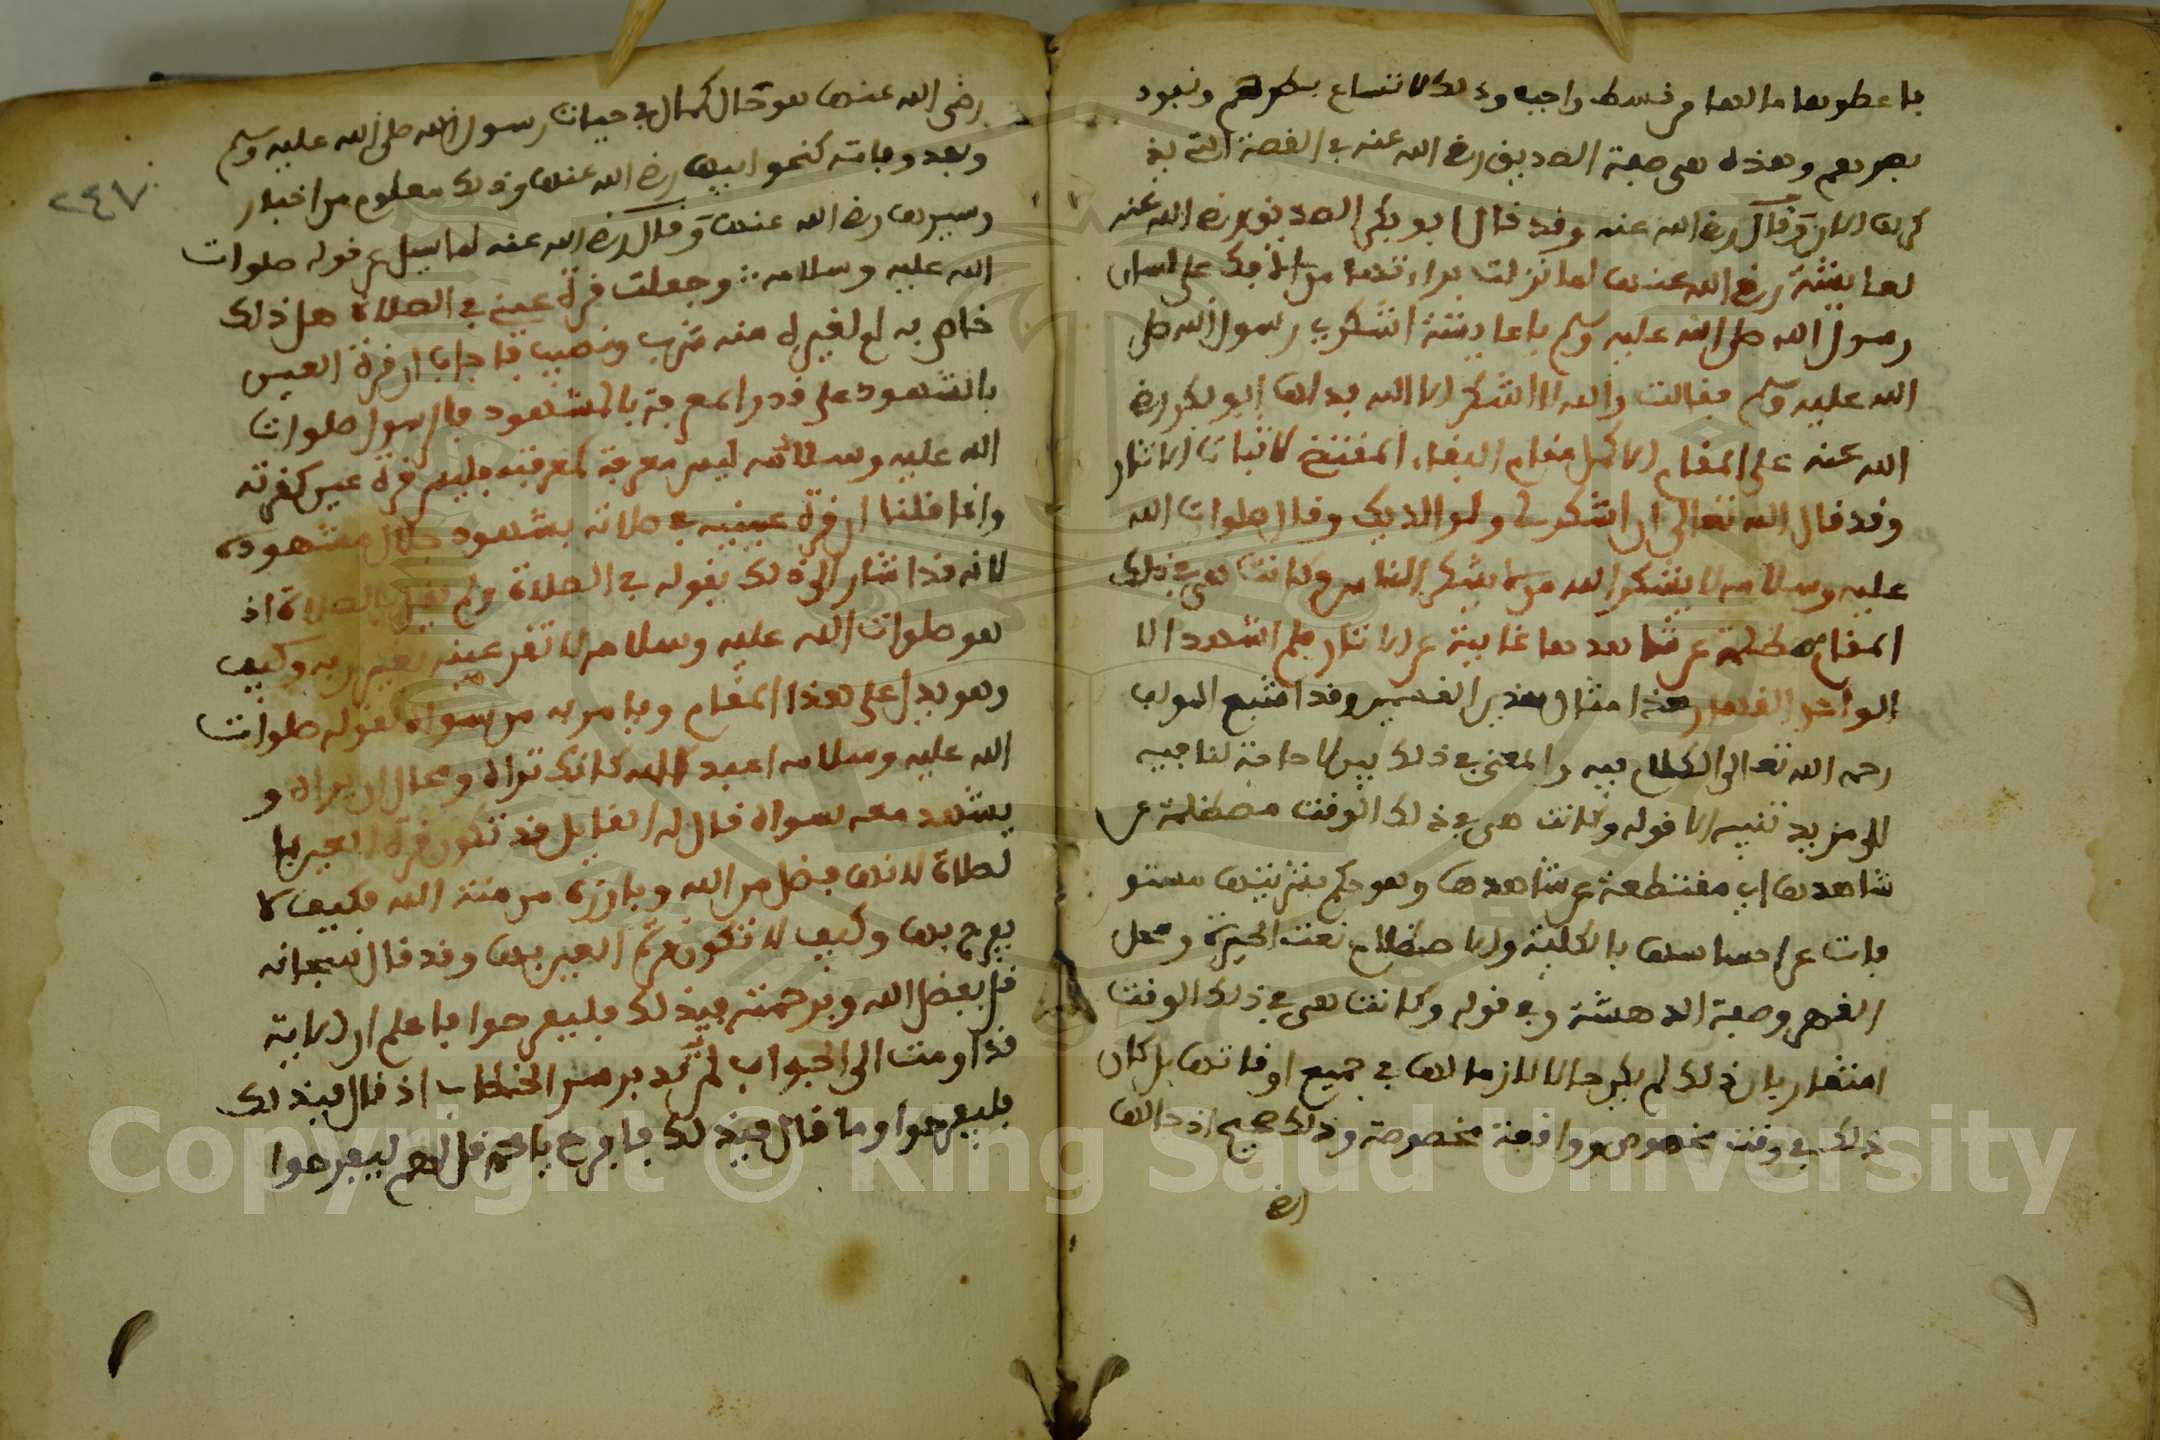 باعطوها مالها من قسط واجبه وذلك لاتساع بطونهم ونفوذ
بصرهم وهذه هي صفة الصديق رضي الله عنه في القصة التي يذ
كرها الان قوقال رضي الله عنه وقد قال ابو بكر الصديق رضي الله عنه
لعايشة رضي الله عنها لما نزلت براءتها من الافك على لسان
رسول الله صلى الله عليه وسلم يا عايشة اشكري رسول الله صلى
الله عليه وسلم فقالت والله لا اشكر الا الله دلها ابو بكر رضي
الله عنه على المقام الاكمل مقام البقاء المقتضي لاثبات الاثار
وقد قال الله تعالى ان اشكر لي ولوالديك وقال صلوات الله
عليه وسلامه لا يشكر الله من لا يشكر الناس وكانت هي في ذلك
المقام مصطلمة عن شاهدها غايبة عن الاثار فلم تشهد الا
الواحد القهار هذا مثال هذين القسمين وقد اشبع المولف
رحمه الله تعالى الكلام فيه والمعنى في ذلك بين لا حاجة لنا فيه
الى مزيد تنبيه الا قوله وكانت هي في ذلك الوقت مصطلمة عن
شاهدها اي مقتطعة عن شاهدها وهو حكم بشريتها مستو
فات عن احساسها بالكلية والاصطلام نعت الحيرة ومحل
القهر وصفة الدهشة وفي قوله وكانت هي في ذلك الوقت
اشعار بان ذلك لم يكن حالا لازما لها في جميع اوقاتها بل كان
ذلك في وقت مخصوص وواقعة مخصوصة وذلك صحيح اذ حالها
رضي
رضي الله عنها هو حال الكمال في حيات رسول الله صلى الله عليه وسلم
وبعد وفاته كنحو ابيها رضي الله عنها وذلك معلوم من اخبار
وسيرها رضي الله عنها وقال رضي الله عنه لما سيل عن قوله صلوات
الله عليه وسلامه وجعلت قرة عيني في الصلاة هل ذلك
خاص به ام لغيره منه شرب ونصيب فاجاب ان قرة العين
بالشهود على قدر المعرفة بالمشهود فالرسول صلوات
الله عليه وسلامه ليس معرفة كمعرفته فليس قرة عين كقرته
وانما قلنا ان قرة عينيه في صلاته بشهود جلال مشهوده
لانه قد اشار الى ذلك بقوله في الصلاة ولم يقل بالصلاة اذ
هو صلوات الله عليه وسلامه لا تقر عينه بغير ربه وكيف
وهو يدل على هذا المقام ويامر به من سواه لقوله صلوات
الله عليه وسلامه اعبد الله كانك تراه ومحال ان يراه و
يشهد معه سواه قال له القايل قد تكون قرة العين با
لصلاة لانها فضل من الله وبارزة من منة الله فكيف لا
يفرح بها وكيف لا تكون قرة العين بها وقد قال سبحانه
قل بفضل الله وبرحمته فبذلك فليفرحوا فاعلم ان الاية
قد اومت الى الجواب لمن تدبر سر الخطاب اذ قال فبذلك
فليفرحوا وما قال فبذلك فافرح يا محمد قل لهم ليفرحوا
٢٤٧
Copyright © King Saud University